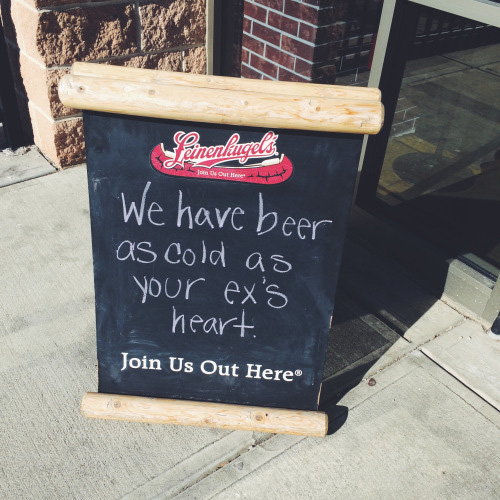 Leinenkugel's
Join Us Out Here®
We have beer
as cold as
your ex's
heart.
Join Us Out Here®